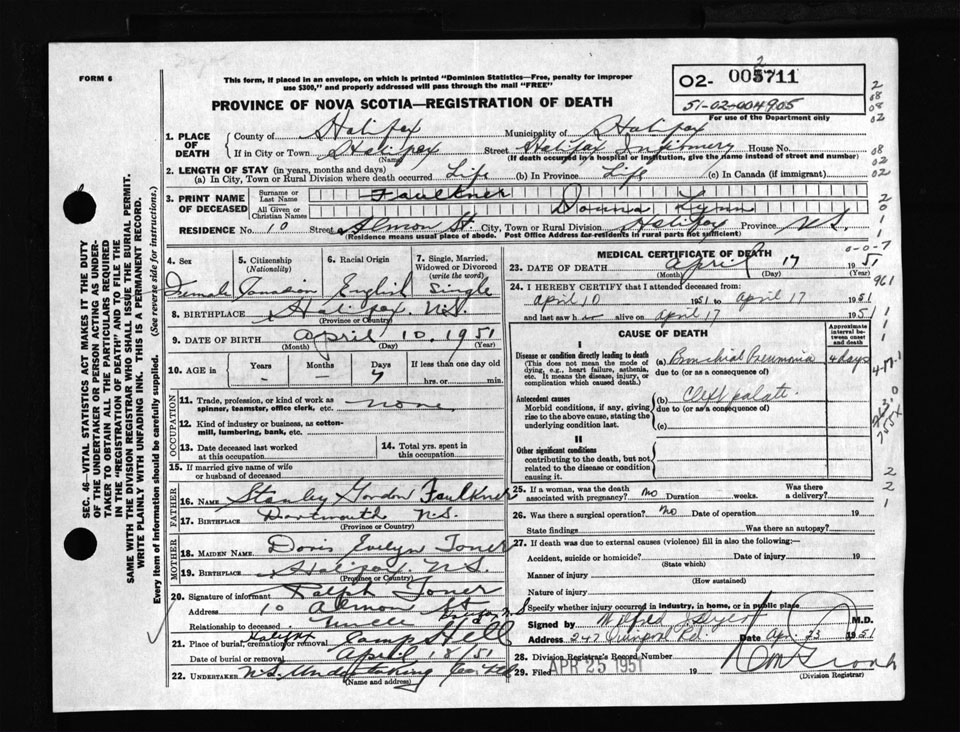 FORM 6
This form, if placed in an envelope, on which is printed "Dominion Statistics—Free, penalty for improper
use $300," and properly addressed will pass through the mail "FREE"
PROVINCE OF NOVA SCOTIA—REGISTRATION OF DEATH
02- 005711
2
51-02-004905
For use of the Department only
1. PLACE OF DEATH
County of Halifax Municipality of Halifax
If in City or Town Halifax Street Halifax Infirmary House No.
(Name) (If death occurred in a hospital or institution, give the name instead of street and number)
2. LENGTH OF STAY (in years, months and days)
(a) In City, Town or Rural Division where death occurred Life (b) In Province Life (c) In Canada (if immigrant)
3. PRINT NAME OF DECEASED
Surname or Last Name Faulkner
All Given or Christian Names Donna Lynn
RESIDENCE No. 10 Street Almon St. City, Town or Rural Division Halifax Province N.S.
(Residence means usual place of abode. Post Office Address for residents in rural parts not sufficient)
4. Sex
Female
5. Citizenship
(Nationality)
Canadian
6. Racial Origin
English
7. Single, Married, Widowed or Divorced
(write the word)
Single
8. BIRTHPLACE Halifax. N.S.
(Province or Country)
9. DATE OF BIRTH April 10. 1951
(Month) (Day) (Year)
10. AGE in Years Months Days If less than one day
- 7 hrs. or min.
11. Trade, profession, or kind of work as
spinner, teamster, office clerk, etc. none
12. Kind of industry or business, as cotton-
mill, lumbering, bank, etc.
13. Date deceased last worked
at this occupation
14. Total yrs. spent in
this occupation
OCCUPATION
15. If married give name of wife
or husband of deceased
FATHER
16. NAME Stanley Gordon Faulkner
17. BIRTHPLACE Dartmouth N.S.
(Province or Country)
MOTHER
18. MAIDEN NAME Doris Evelyn Toner
19. BIRTHPLACE Halifax. N.S.
(Province or Country)
20. Signature of informant Ralph Toner
Address 10 Almon St
Relationship to deceased Uncle
21. Place of burial, cremation or removal Halifax Camp Hill
Date of burial or removal April 18/51
22. UNDERTAKER N.S. Undertaking Co. Ltd
(Name and address)
MEDICAL CERTIFICATE OF DEATH
23. DATE OF DEATH April 17 1951
(Month) (Day) (Year)
24. I HEREBY CERTIFY that I attended deceased from:
April 10 1951 to April 17 1951
and last saw h alive on April 17 1951
CAUSE OF DEATH
Approximate interval between onset and death
I
Disease or condition directly leading to death
(This does not mean the mode of
dying, e.g., heart failure, asthenia,
etc. It means the disease, injury, or
complication which caused death.)
(a) Bronchial Pneumonia 4 days
due to (or as a consequence of)
Antecedent causes
Morbid conditions, if any, giving
rise to the above cause, stating the
underlying condition last.
(b) Cleft palate
due to (or as a consequence of)
(c)
II
Other significant conditions
contributing to the death, but not
related to the disease or condition
causing it.
25. If a woman, was the death
associated with pregnancy? no Duration weeks. Was there
a delivery?
26. Was there a surgical operation? no Date of operation 19
State findings Was there an autopsy?
27. If death was due to external causes (violence) fill in also the following:—
Accident, suicide or homicide? Date of injury 19
(State which)
Manner of injury
(How sustained)
Nature of injury
Specify whether injury occurred in industry, in home, or in public place
Signed by Wilfred J Dyer M.D.
Address 247 Quinpool Rd. Date Apr. 23 1951
28. Division Registrar's Record Number
29. Filed APR 25 1951 19
(Division Registrar)
SEC. 46—VITAL STATISTICS ACT MAKES IT THE DUTY
OF THE UNDERTAKER OR PERSON ACTING AS UNDER-
TAKER TO OBTAIN ALL THE PARTICULARS REQUIRED
IN THE "REGISTRATION OF DEATH" AND TO FILE THE
SAME WITH THE DIVISION REGISTRAR WHO SHALL ISSUE THE BURIAL PERMIT.
WRITE PLAINLY WITH UNFADING INK. THIS IS A PERMANENT RECORD.
Every item of information should be carefully supplied. (See reverse side for instructions.)